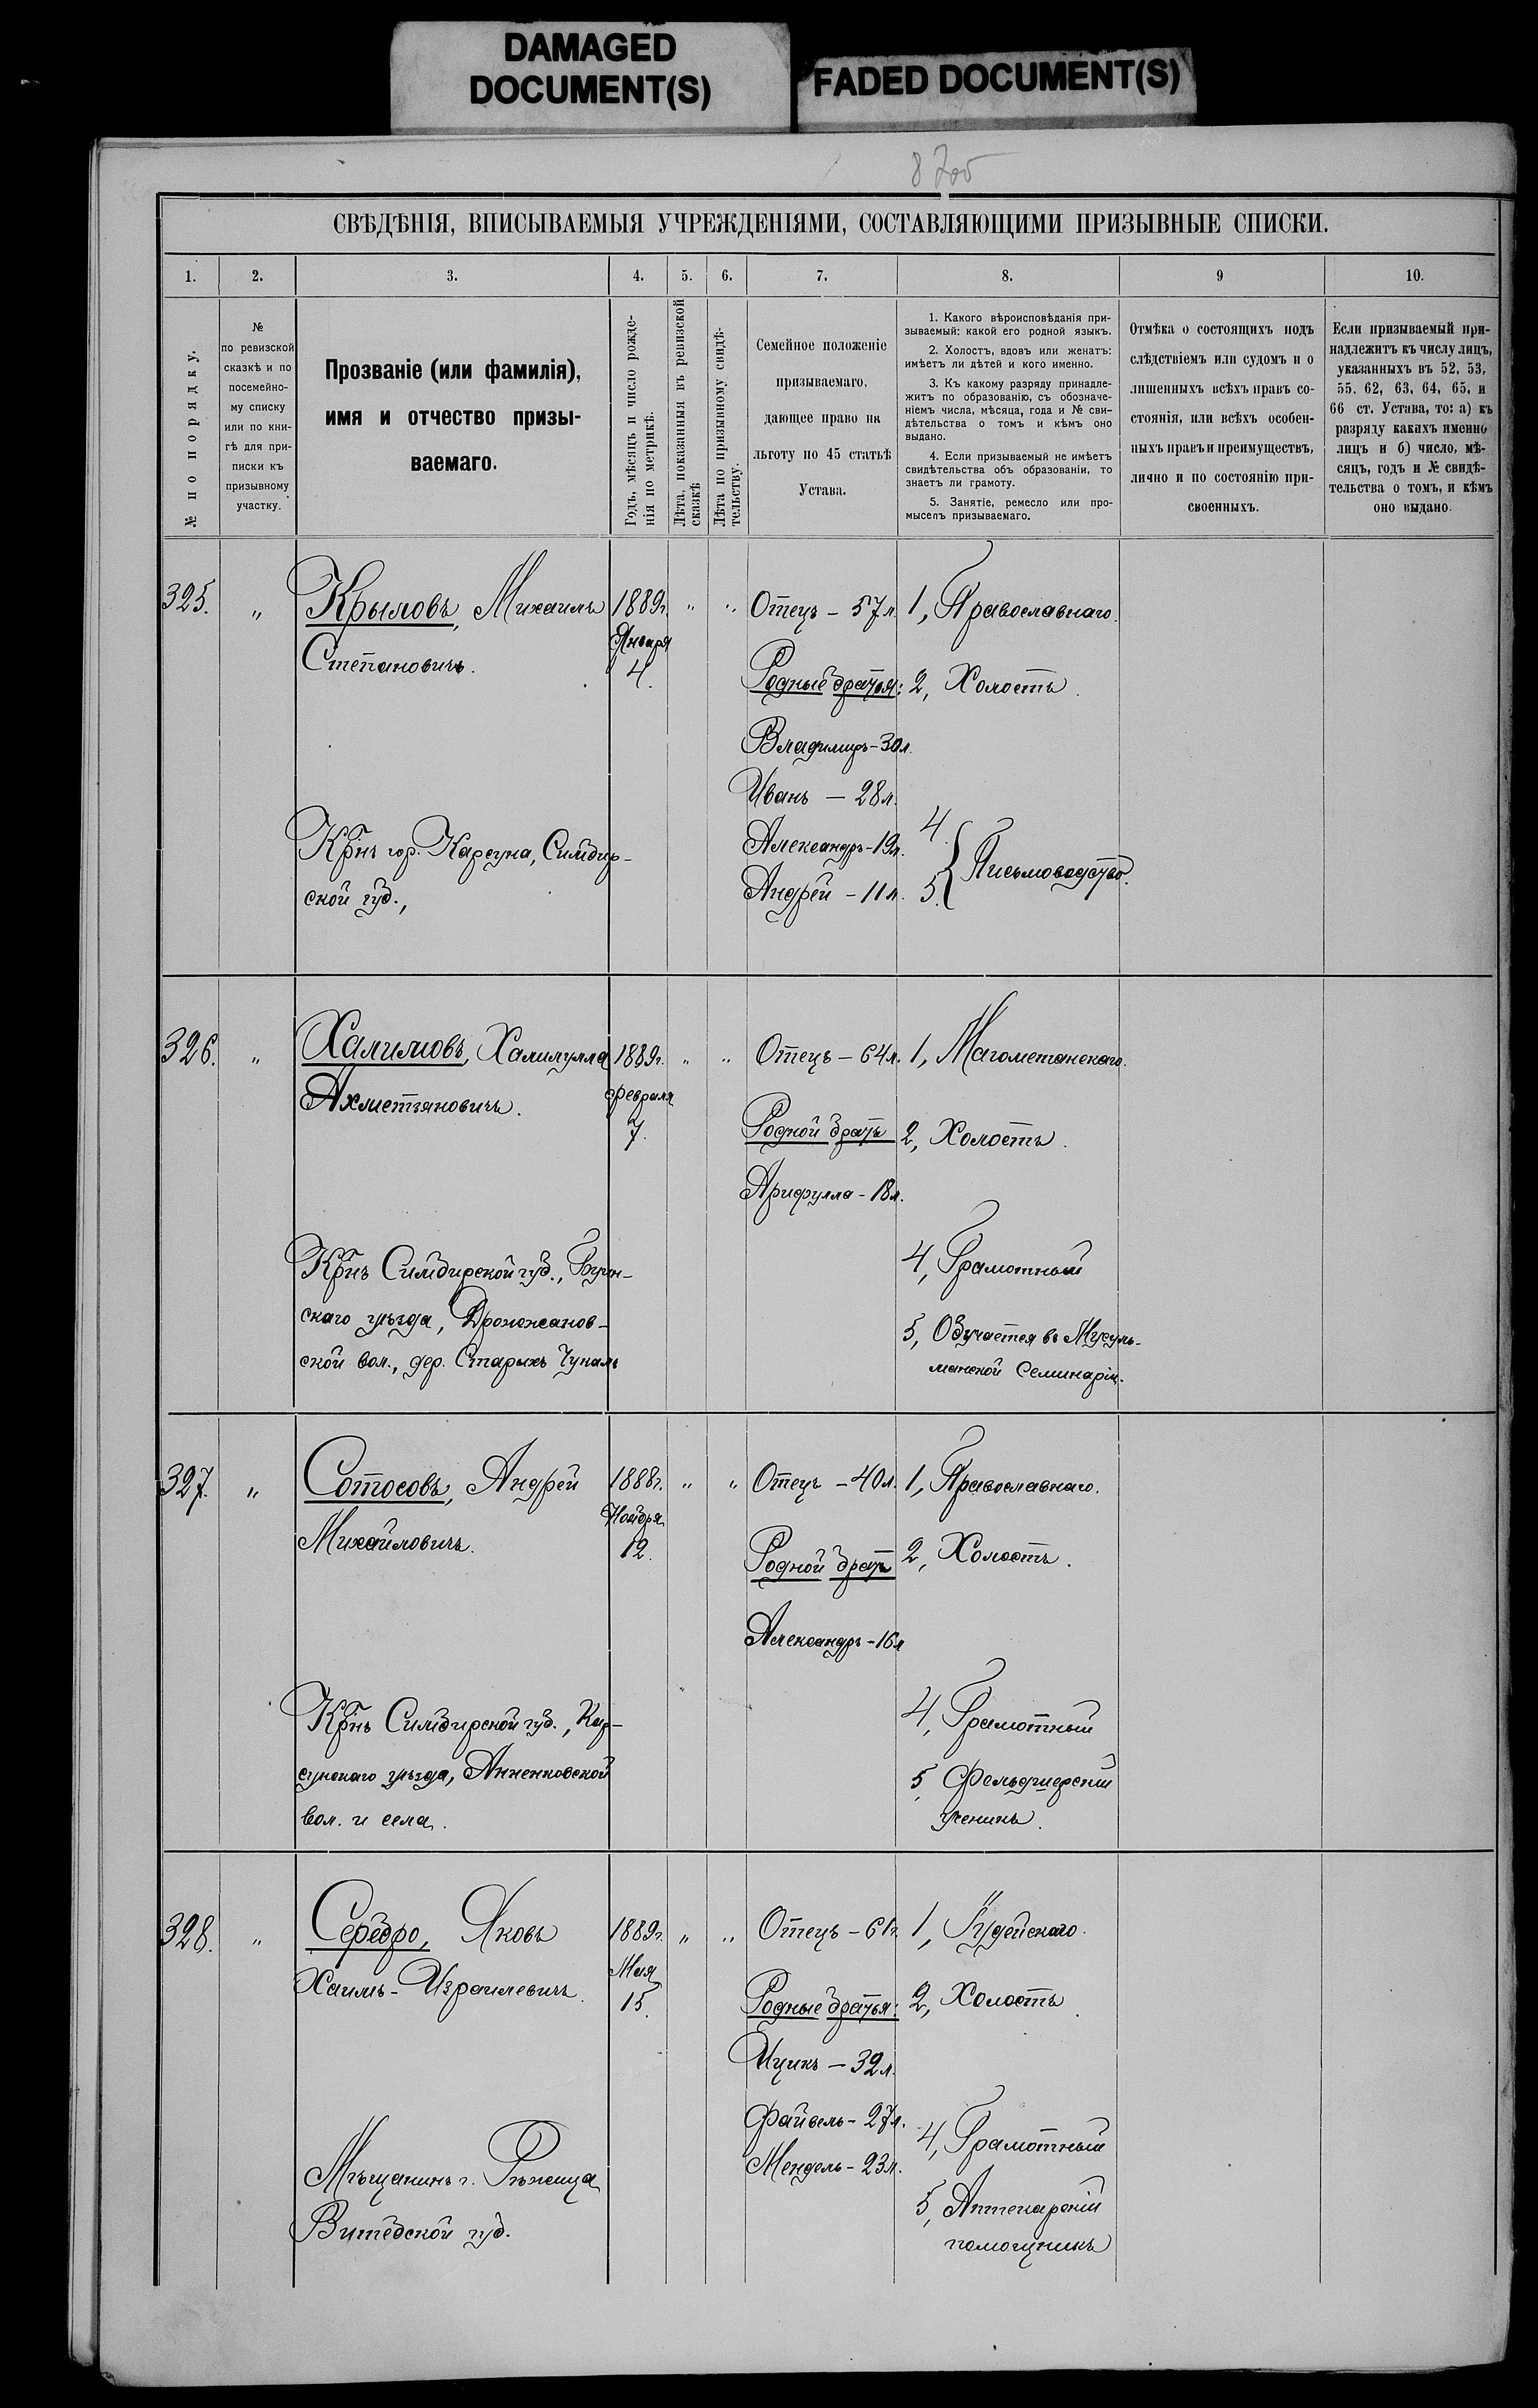 DAMAGED
DOCUMENT(S)
FADED DOCUMENT(S)
СВѢДѢНІЯ, ВПИСЫВАЕМЫЯ УЧРЕЖДЕНІЯМИ, СОСТАВЛЯЮЩИМИ ПРИЗЫВНЫЕ СПИСКИ.
1. 2. 3. 4. 5. 6. 7. 8. 9 10.
№ по порядку.
№
по ревизской
сказкѣ и по
посемейно-
му списку
или по кни-
гѣ для при-
писки къ
призывному
участку.
Прозваніе (или фамилія),
имя и отчество призы-
ваемаго.
Годъ, мѣсяцъ и число рожде-
нія по метрикѣ.
Лѣта, показанныя въ ревизской
сказкѣ
Лѣта по призывному свидѣ-
тельству.
Семейное положеніе
призываемаго,
дающее право на
льготу по 45 статьѣ
Устава.
1. Какого вѣроисповѣданія при-
зываемый: какой его родной языкъ.
2. Холостъ, вдовъ или женатъ:
имѣетъ ли дѣтей и кого именно.
3. Къ какому разряду принадле-
житъ по образованію, съ обозначе-
ніемъ числа, мѣсяца, года и № сви-
дѣтельства о томъ и кѣмъ оно
выдано.
4. Если призываемый не имѣетъ
свидѣтельства объ образованіи, то
знаетъ ли грамоту.
5. Занятіе, ремесло или про-
мыселъ призываемаго.
Отмѣка о состоящихъ подъ
слѣдствіемъ или судомъ и о
лишенныхъ всѣхъ правъ со-
стоянія, или всѣхъ особен-
ныхъ правъ и преимуществъ,
лично и по состоянію при-
своенныхъ.
Если призываемый при-
надлежитъ къ числу лицъ,
указанныхъ въ 52, 53,
55. 62, 63, 64, 65, и
66 ст. Устава, то: а) къ
разряду какихъ именно
лицъ и б) число, мѣ-
сяцъ, годъ и № свидѣ-
тельства о томъ, и кѣмъ
оно выдано.
325. „ Крыловъ, Михаилъ
Степановичъ.
Крнъ гор. Карсуна, Симбир-
ской губ.,
1889г.
Января
4.
„ „
Отецъ – 57 л.
Родные братья:
Владимиръ – 30 л.
Иванъ – 28 л.
Александръ – 19 л.
Андрей – 11 л.
1, Православнаго.
2, Холостъ.
4.
5. { Письмоводство.
326. „ Халимовъ, Халилулла
Ахметзяновичъ.
Крнъ Симбирской губ., Буин-
скаго уѣзда, Дрожжанов-
ской вол., дер. Старыхъ Чукалъ
1889г.
Февраля
7.
„ „
Отецъ – 64 л.
Родной братъ
Арифулла – 18 л.
1, Магометанскаго.
2, Холостъ.
4, Грамотный
5, Обучается въ Мусуль-
манской Семинаріи.
327. „ Сотосовъ, Андрей
Михайловичъ.
Крнъ Симбирской губ., Кар-
сунскаго уѣзда, Анненковской
вол. и села.
1888г.
Ноября
12.
„ „
Отецъ – 40 л.
Родной братъ
Александръ – 16 л
1, Православнаго.
2, Холостъ.
4, Грамотный
5, Фельдшерскій
ученикъ.
328. „ Серебро, Яковъ
Хаимъ-Израилевичъ.
Мѣщанинъ г. Рѣжица
Витебской губ.
1889г.
Мая
15.
„ „
Отецъ – 61 г.
Родные братья:
Ицикъ – 32 л.
Файвель – 27 л.
Мендель – 23 л.
1, Іудейскаго.
2, Холостъ.
4, Грамотный
5, Аптекарскій
помощникъ